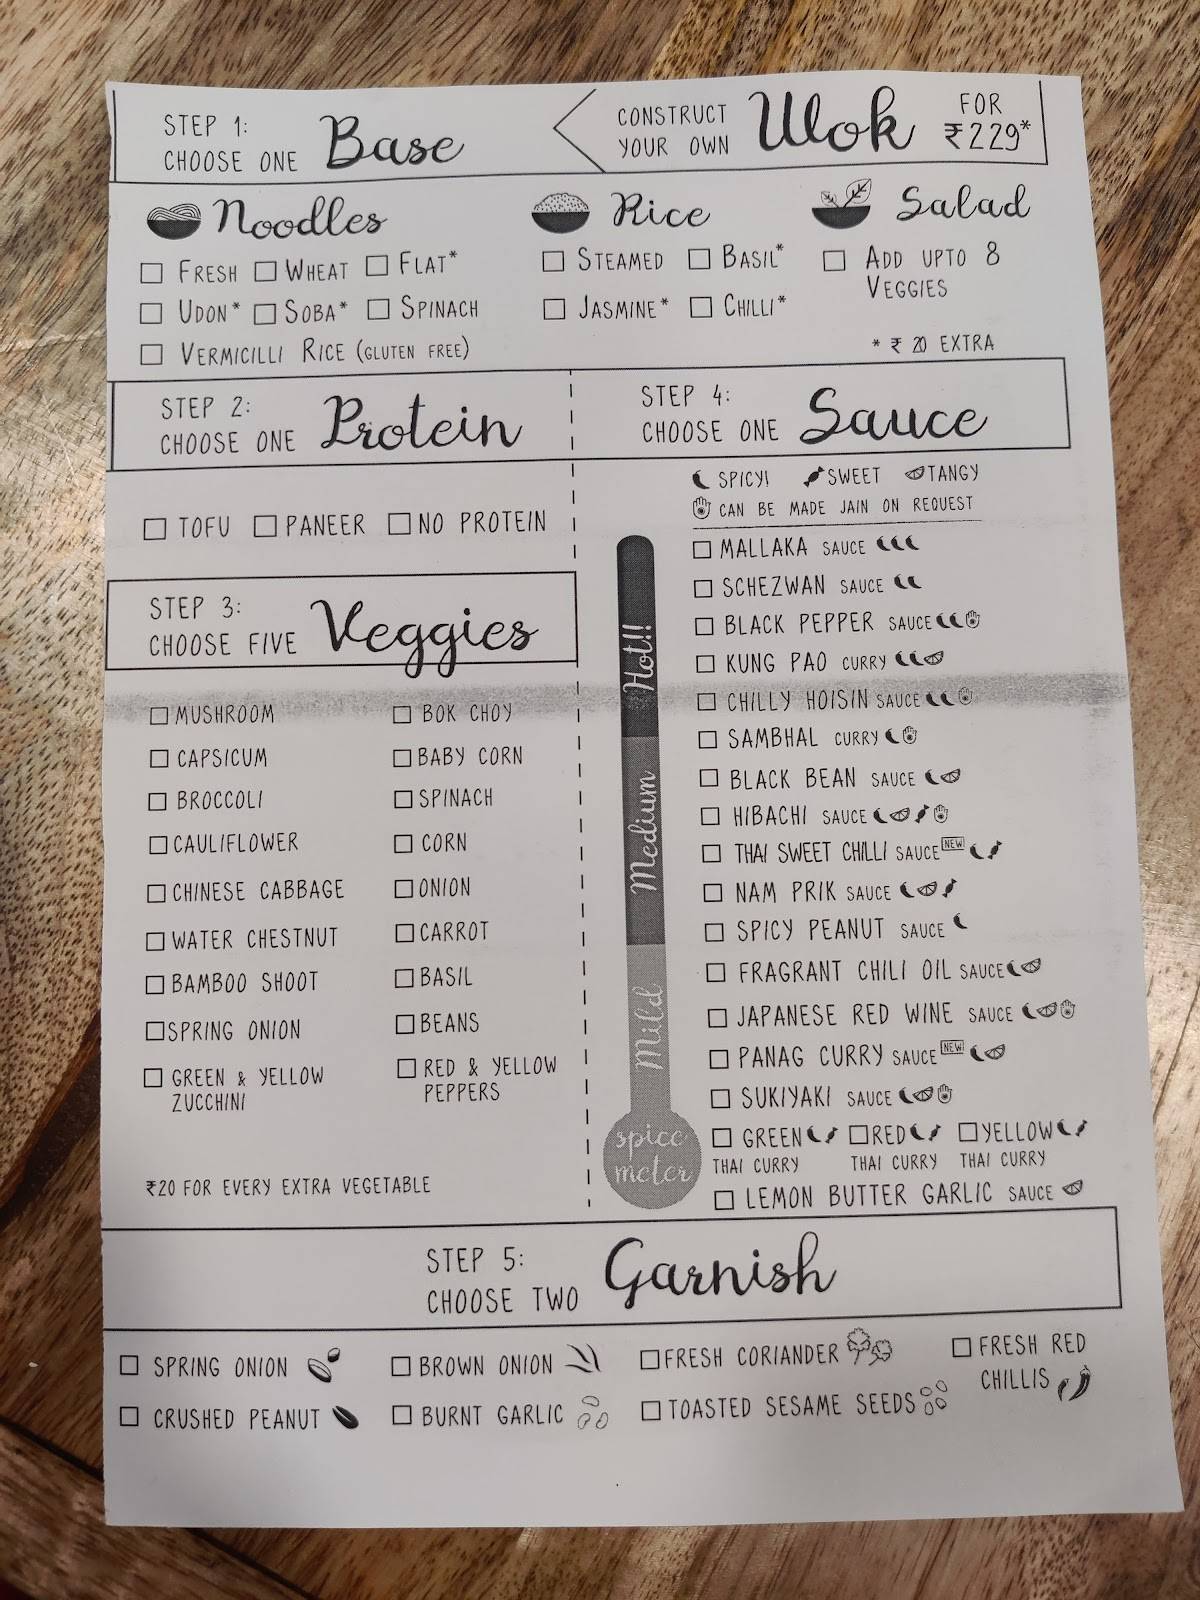 STEP 1:
CHOOSE ONE Base
CONSTRUCT
YOUR OWN Wok FOR
₹229*
Noodles
FRESH WHEAT FLAT*
UDON* SOBA* SPINACH
VERMICILLI RICE (GLUTEN FREE)
Rice
STEAMED BASIL*
JASMINE* CHILLI*
Salad
ADD UPTO 8
VEGGIES
* ₹ 20 EXTRA
STEP 2:
CHOOSE ONE Protein
TOFU PANEER NO PROTEIN
STEP 3:
CHOOSE FIVE Veggies
MUSHROOM
CAPSICUM
BROCCOLI
CAULIFLOWER
CHINESE CABBAGE
WATER CHESTNUT
BAMBOO SHOOT
SPRING ONION
GREEN & YELLOW
ZUCCHINI
BOK CHOY
BABY CORN
SPINACH
CORN
ONION
CARROT
BASIL
BEANS
RED & YELLOW
PEPPERS
₹20 FOR EVERY EXTRA VEGETABLE
STEP 4:
CHOOSE ONE Sauce
SPICY! SWEET TANGY
CAN BE MADE JAIN ON REQUEST
Hot!!
Medium
Mild
spice
meter
MALLAKA SAUCE
SCHEZWAN SAUCE
BLACK PEPPER SAUCE
KUNG PAO CURRY
CHILLY HOISIN SAUCE
SAMBHAL CURRY
BLACK BEAN SAUCE
HIBACHI SAUCE
THAI SWEET CHILLI SAUCE NEW
NAM PRIK SAUCE
SPICY PEANUT SAUCE
FRAGRANT CHILI OIL SAUCE
JAPANESE RED WINE SAUCE
PANAG CURRY SAUCE NEW
SUKIYAKI SAUCE
GREEN RED YELLOW
THAI CURRY THAI CURRY THAI CURRY
LEMON BUTTER GARLIC SAUCE
STEP 5:
CHOOSE TWO Garnish
SPRING ONION BROWN ONION FRESH CORIANDER FRESH RED
CHILLIS
CRUSHED PEANUT BURNT GARLIC TOASTED SESAME SEEDS